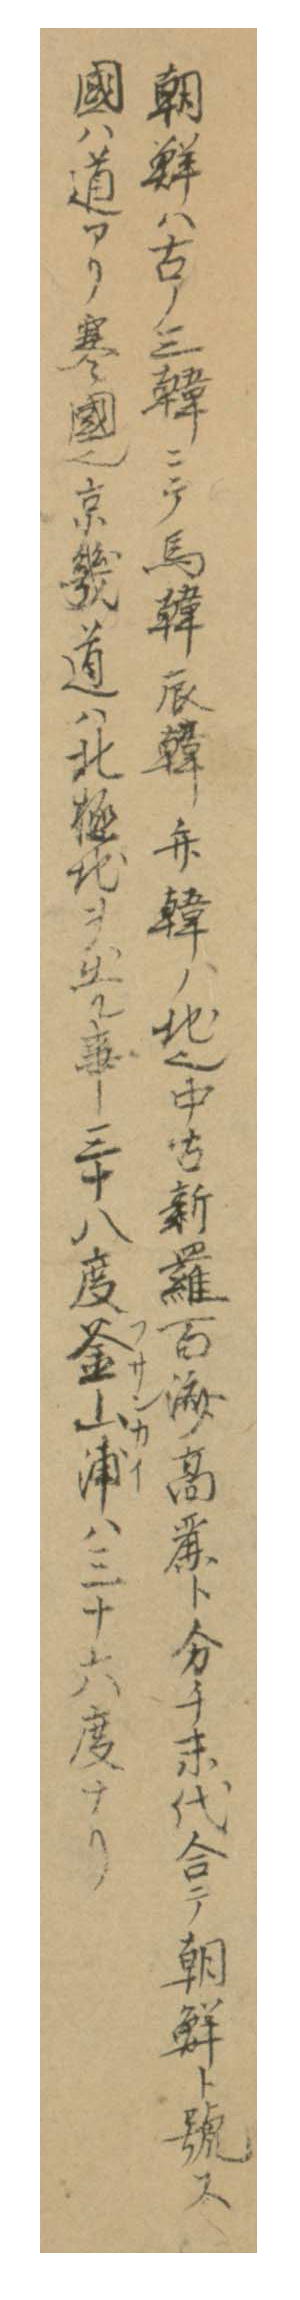 朝鮮ハ古ノ三韓ニテ馬韓辰韓弁韓ノ地也中古新羅百済高麗ト分チ末代合テ朝鮮ト號ス
國ハ道アリ寒國也京畿道ハ北極地ヲ出ル事三十八度釜山浦フサンカイハ三十六度ナリ